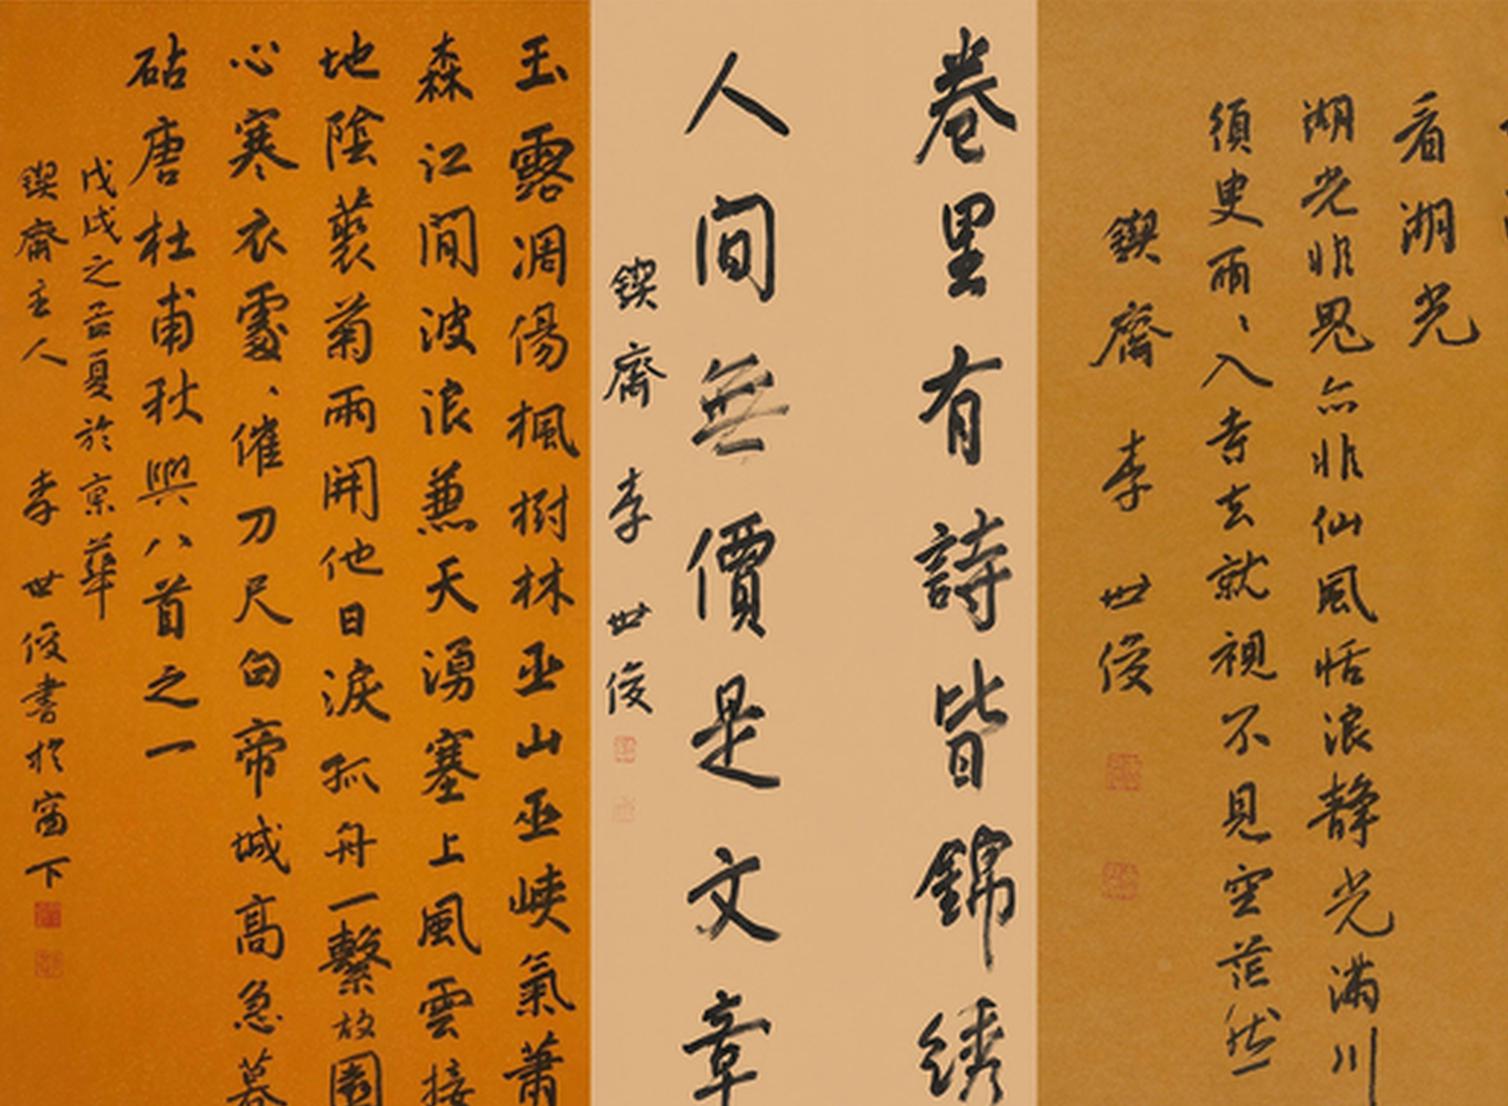 玉露凋傷楓樹林巫山巫峽氣蕭
森江間波浪兼天湧塞上風雲接
地陰藂菊兩開他日淚孤舟一繫故園
心寒衣處、催刀尺白帝城高急暮
砧唐杜甫秋興八首之一
戊戌之孟夏於京華
鍥齋主人 李世俊書於窗下
卷里有詩皆錦绣
人間無價是文章
鍥齋 李世俊
看湖光
湖光非鬼亦非仙風恬浪静光滿川
須臾兩、入寺去就視不見空茫然
鍥齋 李世俊